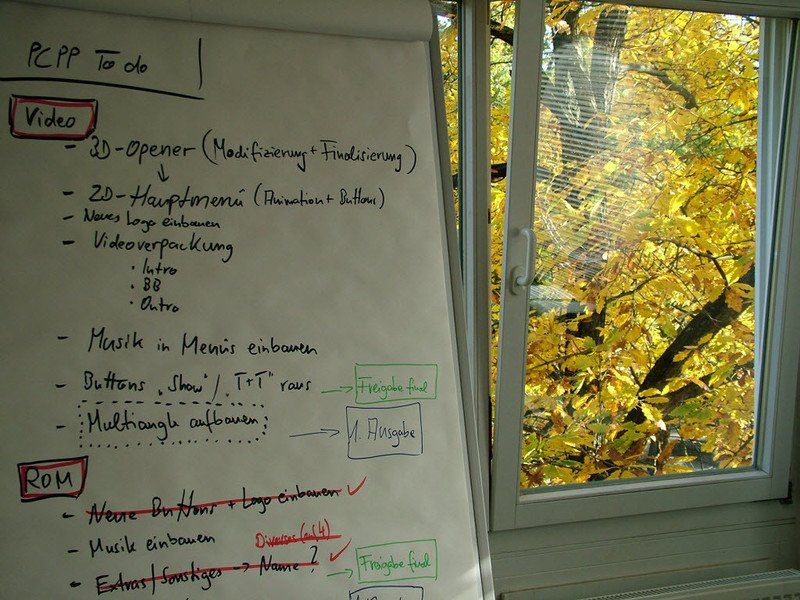 PCPP To do
Video
- 3D-Opener (Modifizierung + Finalisierung)
↓
- 2D-Hauptmenü (Animation + Buttons)
- Neues Logo einbauen
- Videoverpackung
· Intro
· BB
· Outro
- Musik in Menüs einbauen
- Buttons "Show" / "T+T" raus → Freigabe final
- Multiangle aufbauen → 1. Ausgabe
ROM
- Neue Buttons + Logo einbauen ✓
- Musik einbauen
Diverses (auf 4)
- Extras/Sonstiges → Name? ✓ → Freigabe final